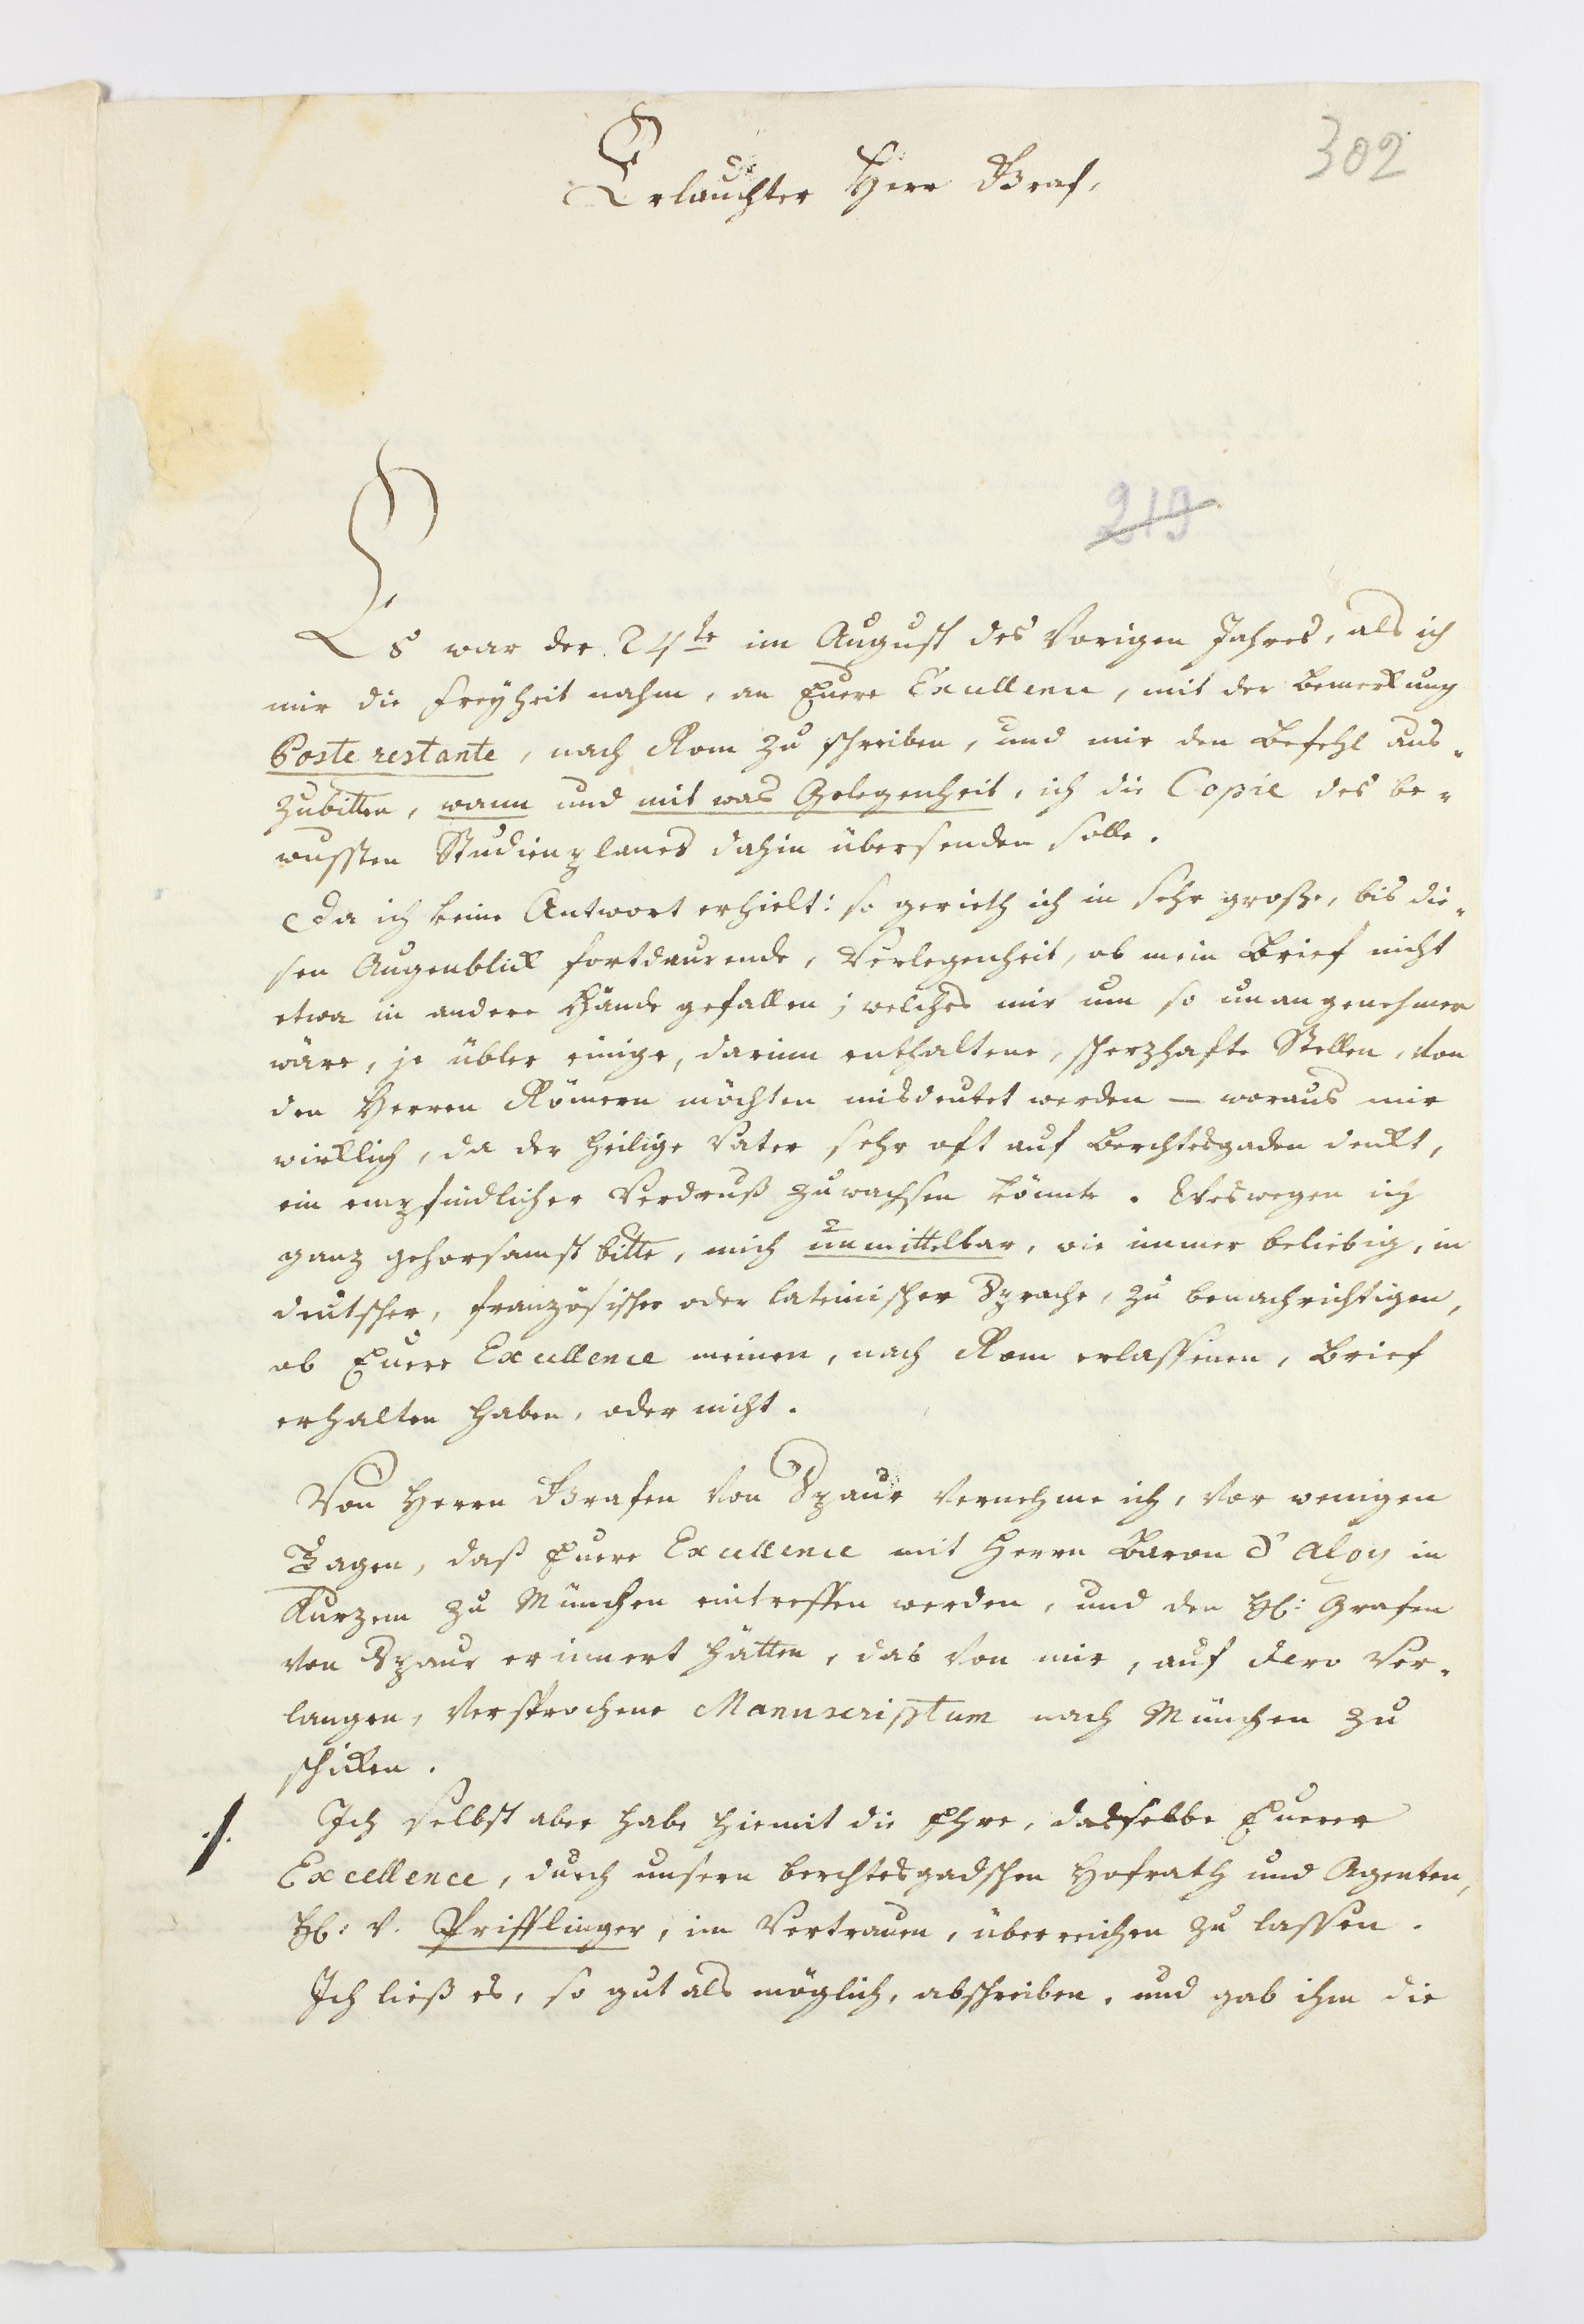 302
Erlauchter Herr Graf,
219
Es war der 24te im August des vorigen Jahres, als ich
mir die Freyheit nahm, an Euere Excellence, mit der Bemerkung
Poste restante, nach Rom zu schreiben, und mir den Befehl aus-
zubitten, wann und mit was Gelegenheit, ich die Copie des be-
wussten Studienplanes dahin übersenden solle.
Da ich keine Antwort erhielt: so gerieth ich in sehr große, bis die-
sen Augenblick fortdaurende, Verlegenheit, ob mein Brief nicht
etwa in andere Hände gefallen; welches mir um so unangenehmer
wäre, je übler einige, darinn enthaltene, scherzhafte Stellen, von
den Herren Römern möchten misdeutet werden — woraus mir
wirklich, da der heilige Vater sehr oft auf Berchtesgaden denkt,
ein empfindlicher Verdruß zuwachsen könnte. Weswegen ich
ganz gehorsamst bitte, mich unmittelbar, wie immer beliebig, in
deutscher, französischer oder lateinischer Sprache, zu benachrichtigen,
ob Euere Excellence meinen, nach Rom erlassenen, Brief
erhalten haben, oder nicht.
Von Herrn Grafen von Spaur vernehme ich, vor wenigen
Tagen, daß Euere Excellence mit Herrn Baron d'Aloy in
Kurzem zu München eintreffen werden, und den H: Grafen
von Spaur erinnert hätten, das von mir, auf dero Ver-
langen, versprochene Manuscriptum nach München zu
schicken.
./. Ich selbst aber habe hiemit die Ehre, dasselbe Euerer
Excellence, durch unsern berchtesgadschen Hofrath und Agenten,
H: v. Prifflinger, im Vertrauen, überreichen zu lassen.
Ich ließ es, so gut als möglich, abschreiben, und gab ihm die